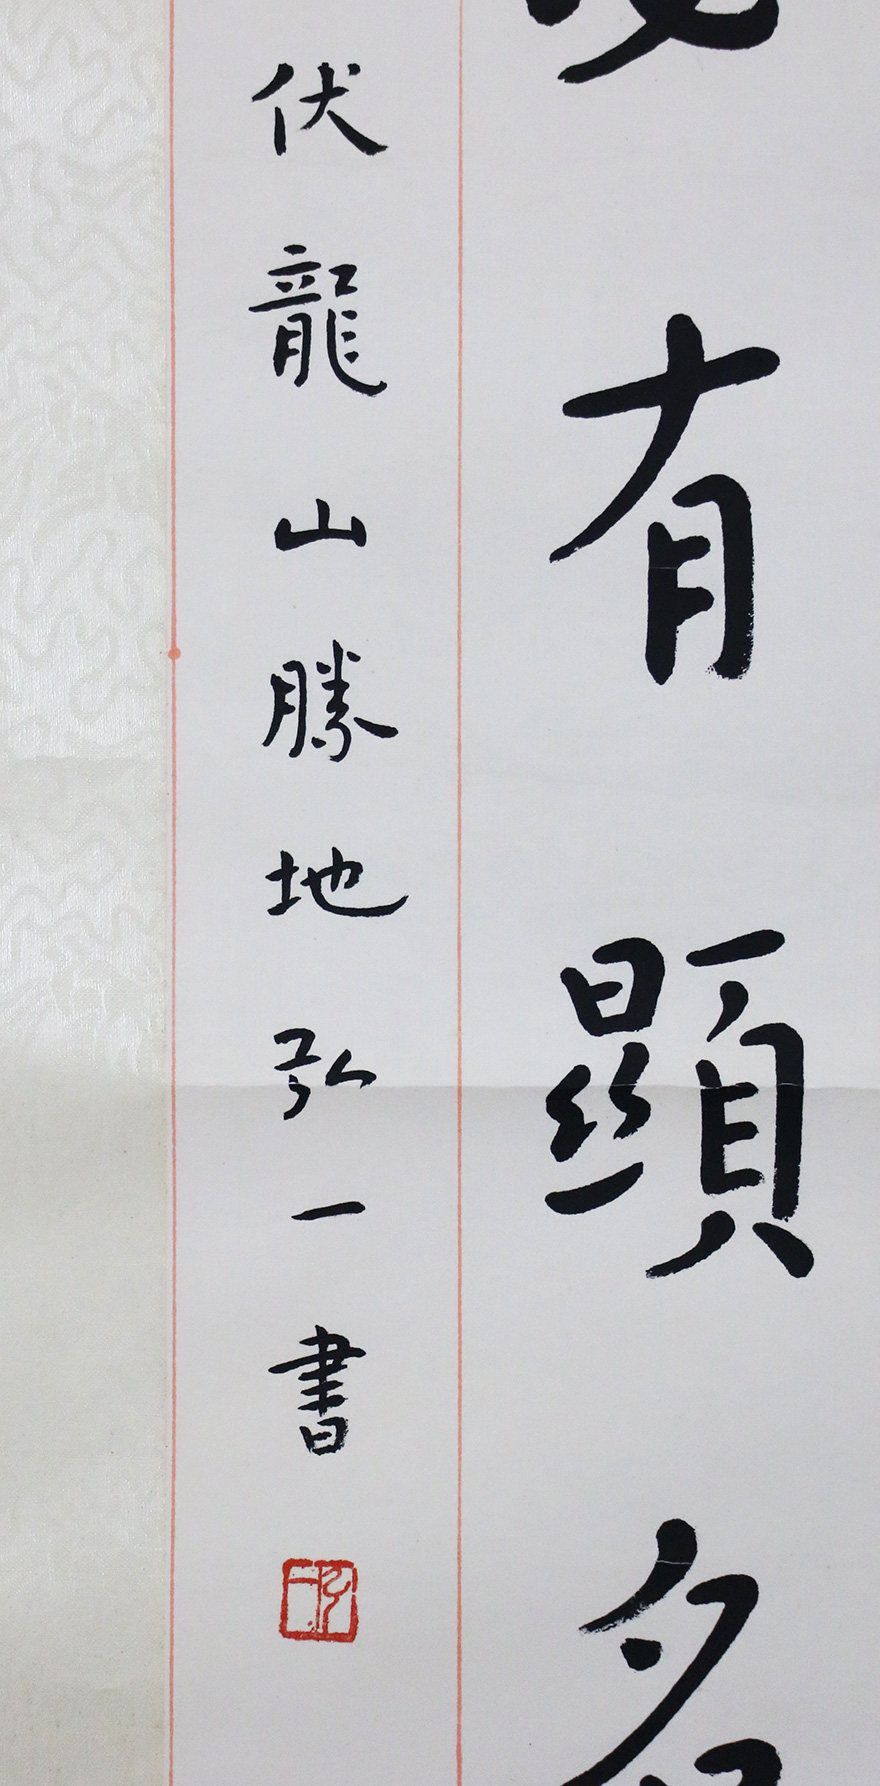 有顯名
伏龍山勝地弘一書
弘一